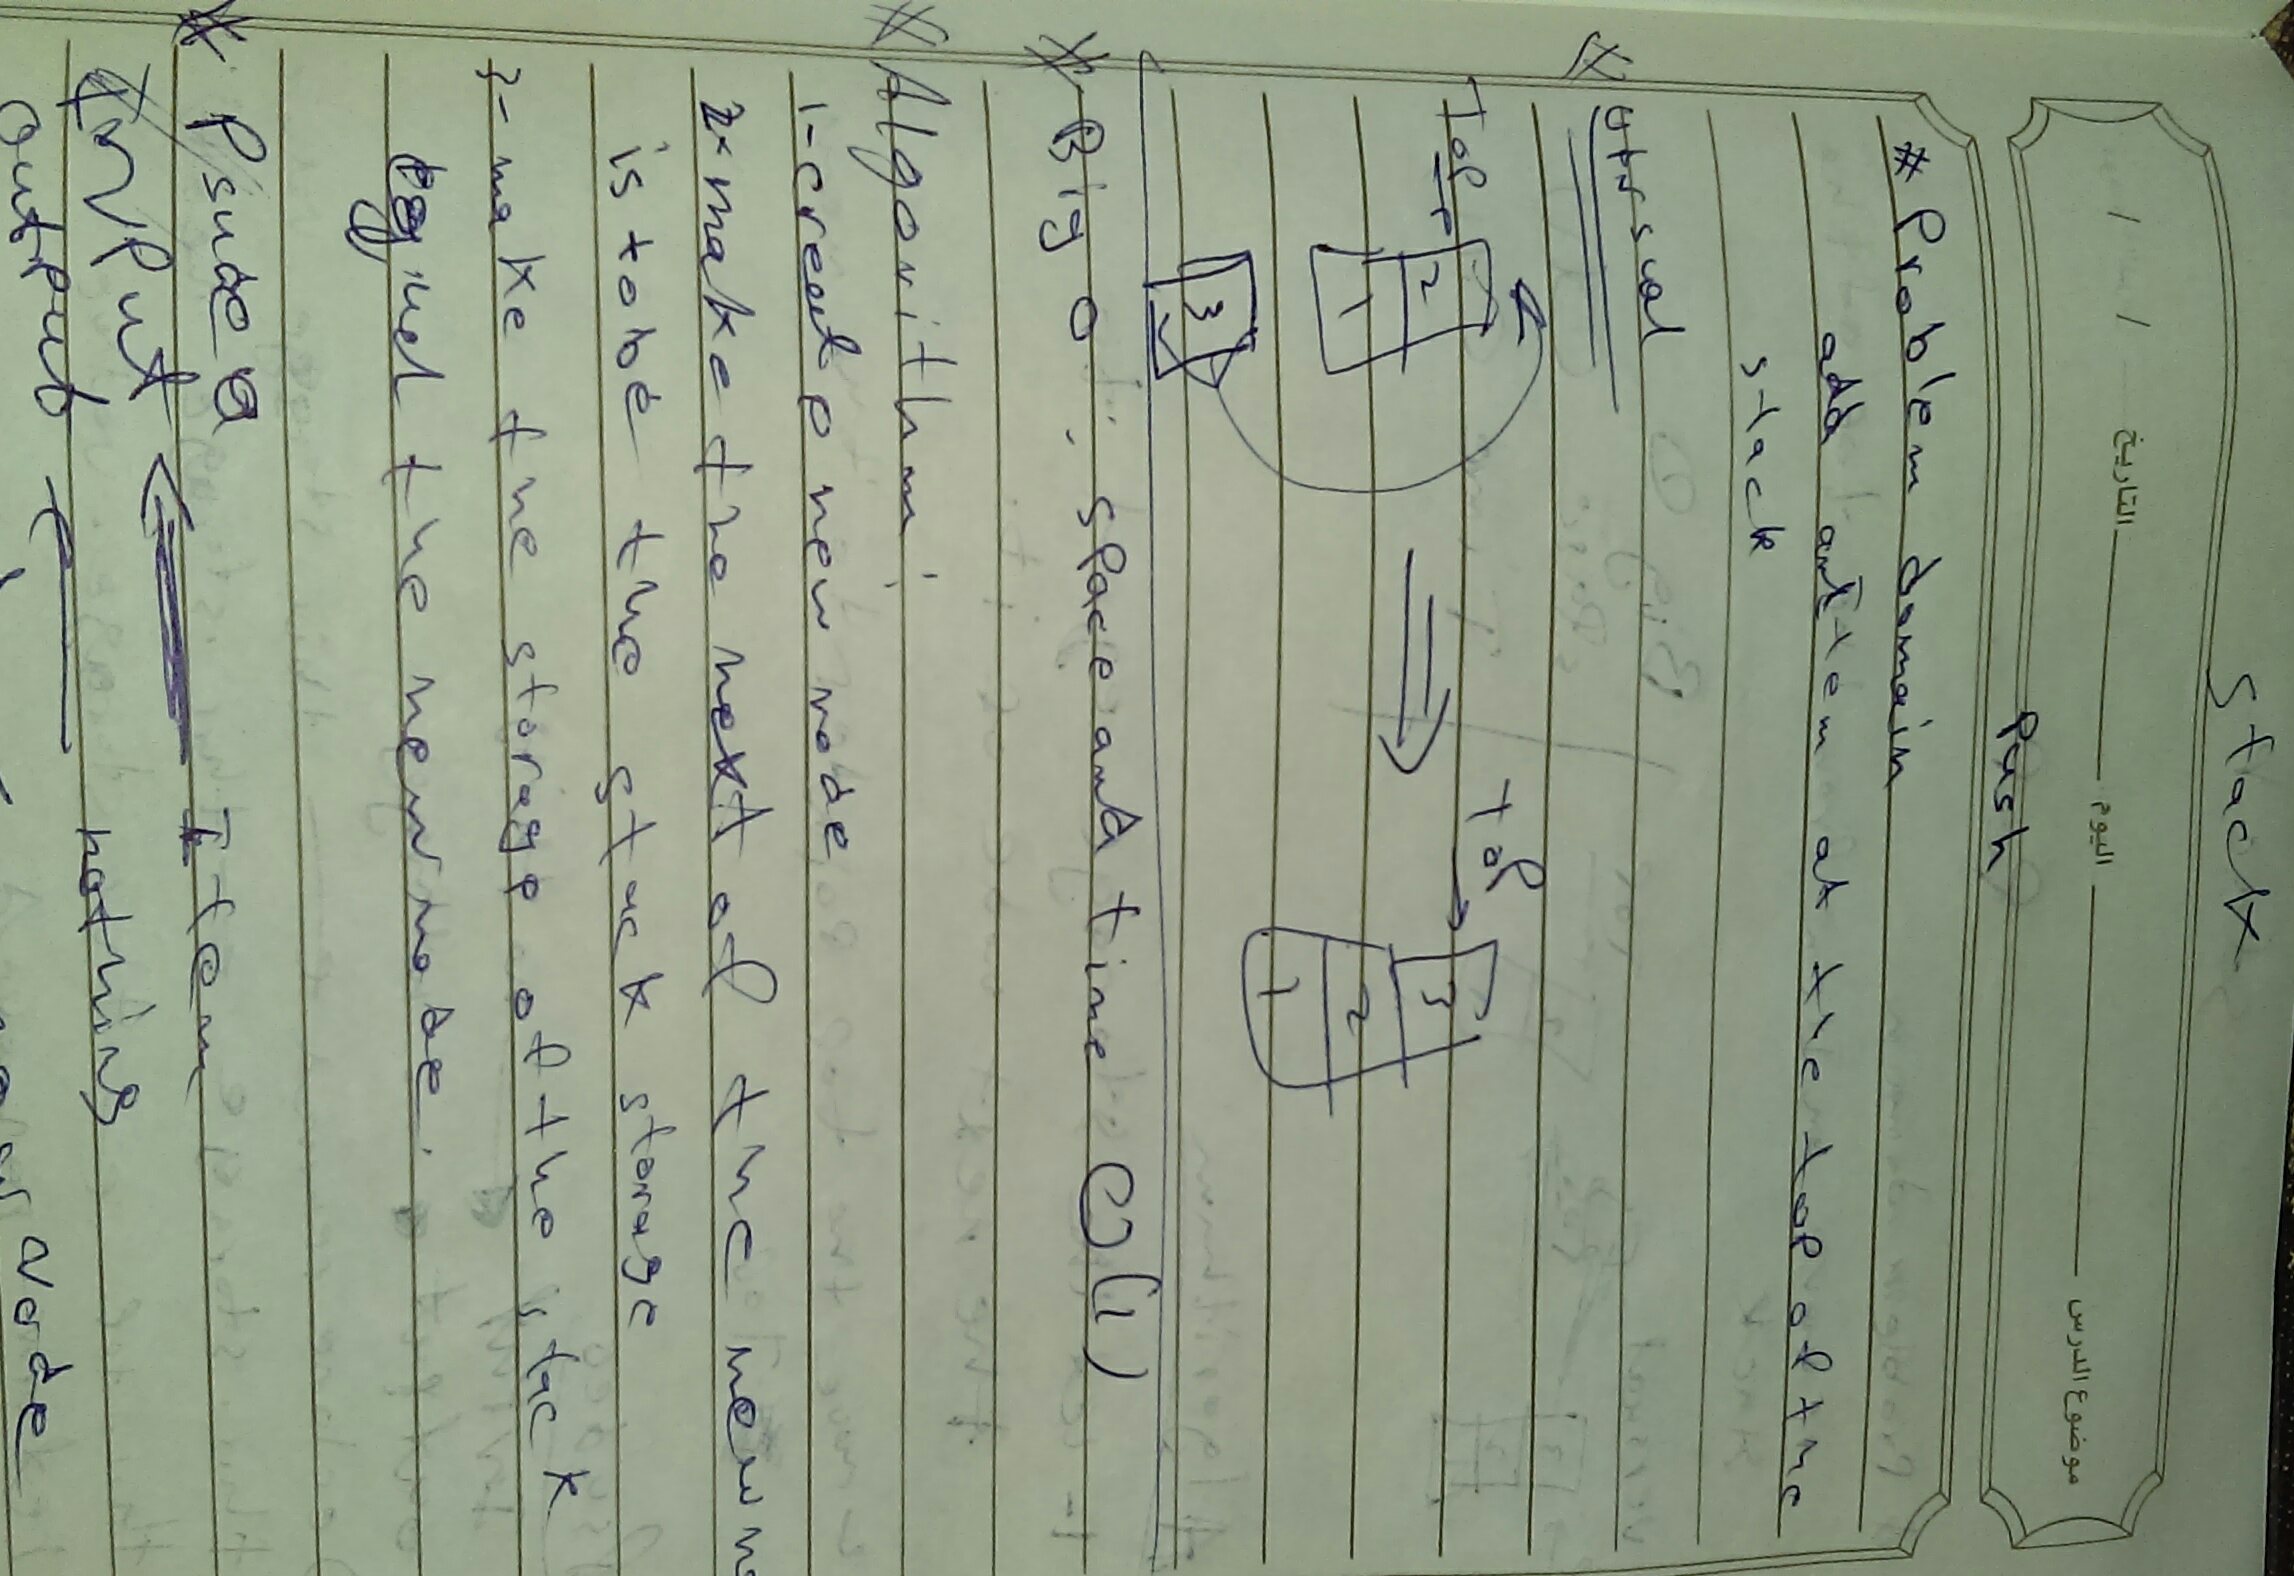 Stack
التاريخ / / اليوم موضوع الدرس
Push
# Problem domain
add an item at the top of the
stack
# Visual
Top
2
1
3
Top
3
2
1
# Big O : space and time O(1)
# Algorithm :
1- creat a new node
2- make the next of the new no
is to be the stack storage
3- make the storage of the stack
equel the new node.
# Psudeo
Input ⇐ Item
output ← nothing
Node